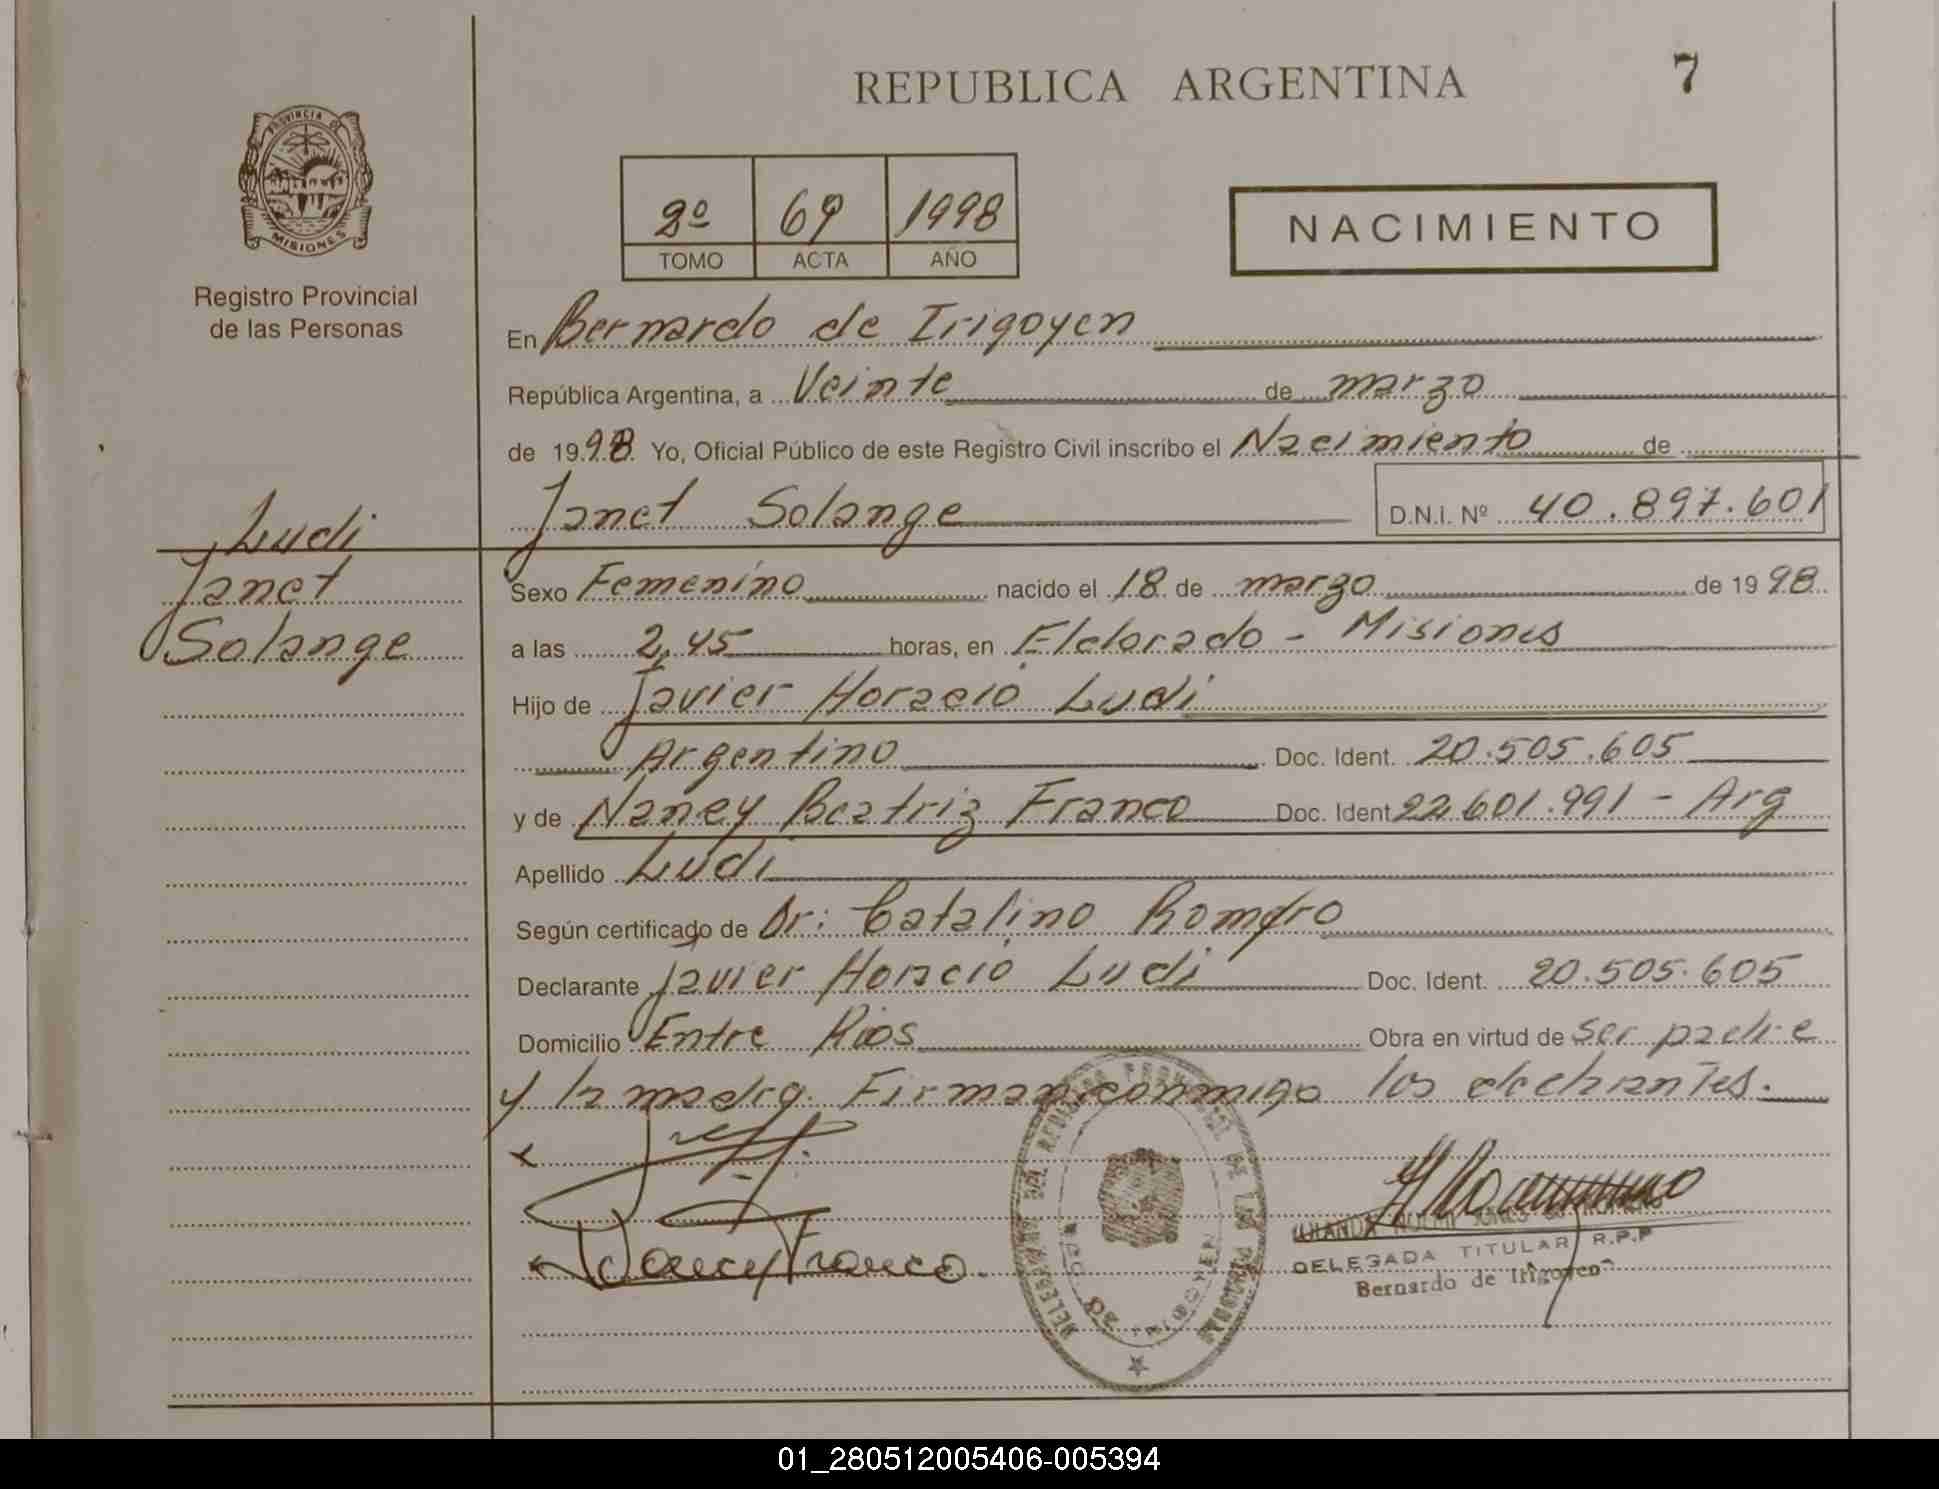 REPUBLICA ARGENTINA
7
PROVINCIA DE
MISIONES
Registro Provincial
de las Personas
2º 69 1998
TOMO ACTA AÑO
NACIMIENTO
En Bernardo de Irigoyen
República Argentina, a Veinte de marzo
de 1998 Yo, Oficial Público de este Registro Civil inscribo el Nacimiento de
Janet Solange D.N.I. Nº 40.897.601
Ludi
Janet
Solange
Sexo Femenino nacido el 18 de marzo de 1998
a las 2,45 horas, en Eldorado - Misiones
Hijo de Javier Horacio Ludi
Argentino Doc. Ident. 20.505.605
y de Nancy Beatriz Franco Doc. Ident 22.601.991 - Arg
Apellido Ludi
Según certificado de Dr: Catalino Romero
Declarante Javier Horacio Ludi Doc. Ident. 20.505.605
Domicilio Entre Rios Obra en virtud de ser padre
y la madre. Firman conmigo los declarantes.
Nancy Franco
DELEGADA TITULAR R.P.P
Bernardo de Irigoyen
01_280512005406-005394